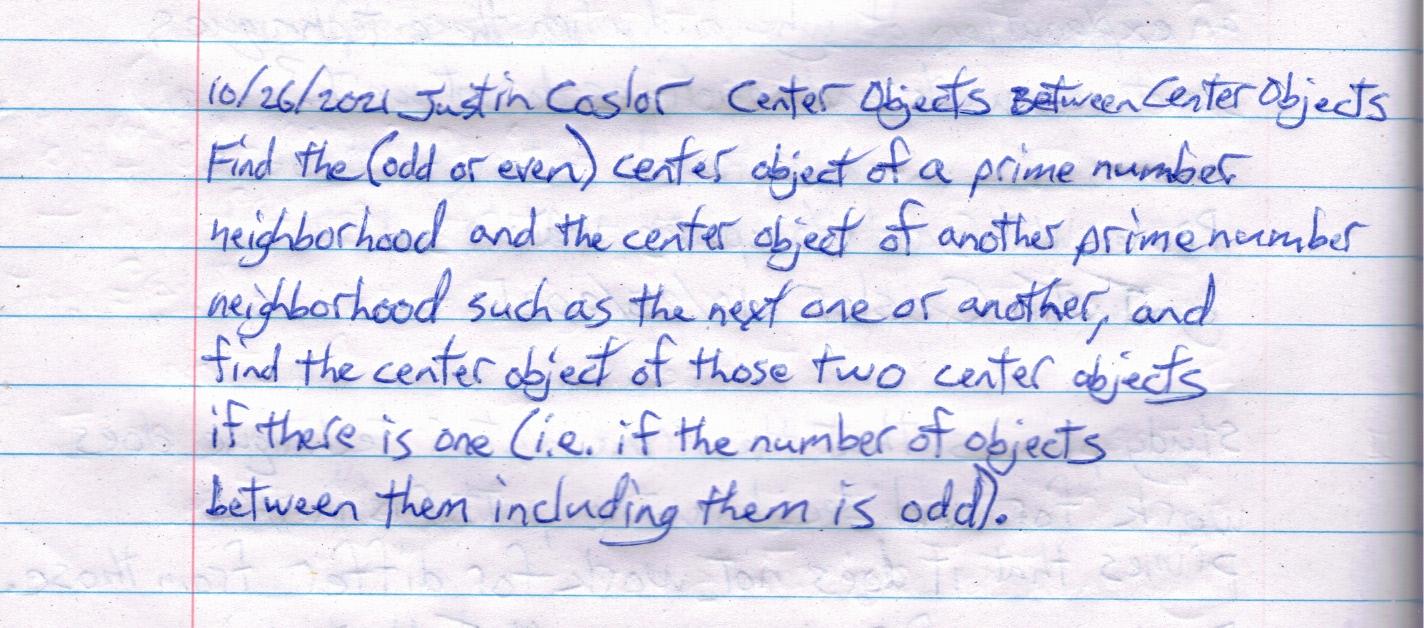 10/26/2021 Justin Coslor Center Objects Between Center Objects
Find the (odd or even) center object of a prime number
neighborhood and the center object of another prime number
neighborhood such as the next one or another, and
find the center object of those two center objects
if there is one (i.e. if the number of objects
between them including them is odd).